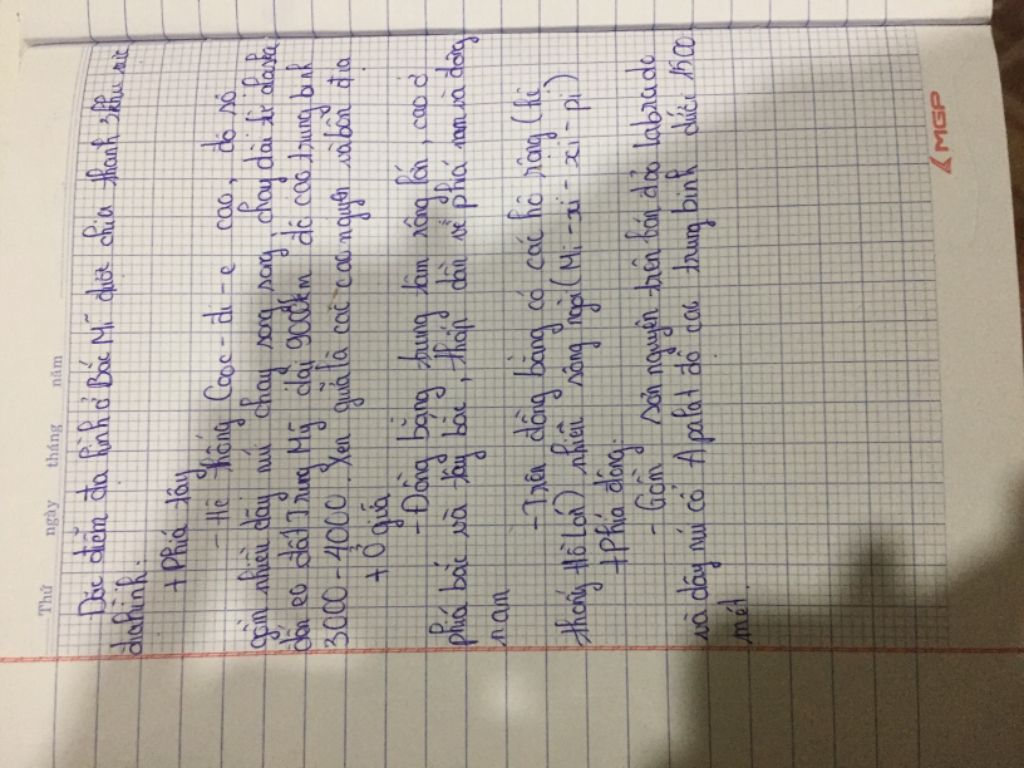 Thứ ngày tháng năm
Đặc điểm địa hình ở Bắc Mĩ được chia thành 3 khu vực
địa hình.
+ Phía tây
- Hệ thống Cooc-di-e cao, đồ sộ
gồm nhiều dãy núi chạy song song, chạy dài từ alaxka
đến eo đất Trung Mỹ dài 9000km độ cao trung bình
3000 - 4000. Xen giữa là các cao nguyên và bồn địa
+ Ở giữa
- Đồng bằng trung tâm rộng lớn, cao ở
phía bắc và tây bắc, thấp dần về phía nam và đông
nam
- Trên đồng bằng có các hồ rộng (hệ
thống Hồ Lớn) nhiều sông ngòi (Mi-xi-xi-pi)
+ Phía đông.
- Gồm sơn nguyên trên bán đảo labrado
và dãy núi cổ Apalat độ cao trung bình dưới 1500
mét.
MGP